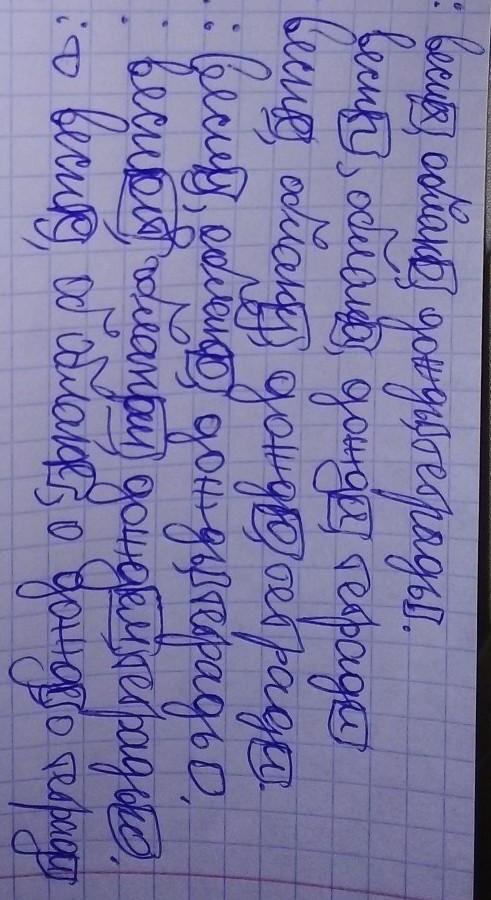 : весна, облако, дождь, тетрадь.
: весны, облака, дождя, тетради
: весне, облаку, дождю, тетради.
: весну, облако, дождь, тетрадь.
: весной, облаком, дождем, тетрадью.
: о весне, об облаке, о дожде, о тетради